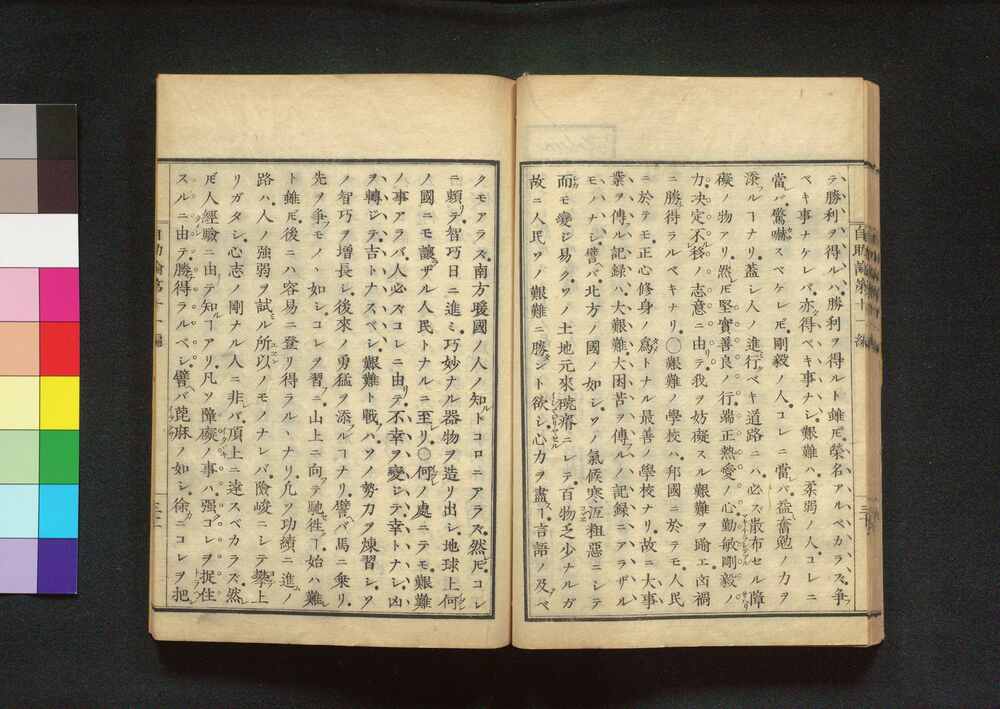 テ勝利ヲ得ルハ勝利ヲ得ルト雖𪜈榮名アルベカラズ爭フ
ベキ事ナケレバ亦得ベキ事ナシ艱難ハ柔弱ノ人コレニ
當レバ驚嚇スベケレ𪜈剛毅ノ人コレニ當レバ益奮勉ノ力ヲ
添フルヿナリ蓋シ人ノ進行スベキ道路ニハ必ズ散布セル障
礙ノ物アリ然レ𪜈堅實善良ノ行端正熱愛ノ心勤敏剛毅ノ
力決定不移ノ志意ニ由リテ我ヲ妨礙スル艱難ヲ踰エ窩禍
ニ勝得ラルベキナリ〇艱難ノ學校ハ邦國ニ於テモ人民
ニ於テモ正心修身ノ爲メトナル最善ノ學校ナリ故ニ大事
業ヲ傳フル記録ハ大艱難大困苦ヲ傳フルノ記録ニアラザル
モノハナシ譬ヘバ北方ノ國ノ如シソノ氣候寒冱粗惡ニシテ
而モ變ジ易クソノ土地元來磽瘠ニシテ百物乏少ナルガ
故ニ人民ソノ艱難ニ勝タント欲シ心力ヲ盡スヿ言語ノ及ブベ
自助論第十一編
三十
クモアラズ南方暖國ノ人ノ知ルトコロニアラズ然レ𪜈コレ
ニ頼リテ智巧日ニ進ミ巧妙ナル器物ヲ造リ出シ地球上何
ノ國ニモ讓ラザル人民トナルニ至レリ〇何レノ處ニテモ艱難
ノ事アラバ人必ズコレニ由テ不幸ヲ變シテ幸トナシ凶
ヲ轉ジテ吉トナスベシ艱難ト戰ヘバソノ勢力ヲ煉習シソ
ノ智巧ヲ増長シ後來ノ勇猛ヲ添フルヿナリ譬ヘバ馬ニ乗リ
先ヲ爭フモノヽ如シコレヲ習フニ山上ニ向テ馳徃スルヿ始ハ難シ
ト雖𪜈後ニハ容易ニ登リ得ラルヽナリ凡ソ功績ニ進ムノ
路ハ人ノ強弱ヲ試ル所以ノモノナレバ險峻ニシテ攀ヂ上
リガタシ心志ノ剛ナル人ニ非レバ頂上ニ達スベカラズ然
レ𪜈人經驗ニ由テ知ルヿアリ凡ソ障礙ノ事ハ强テコレヲ捉住
スルニ由テ勝得ラルベシ譬ヘバ蓖麻ノ如シ徐カニコレヲ把
自助論第十一編
三十一